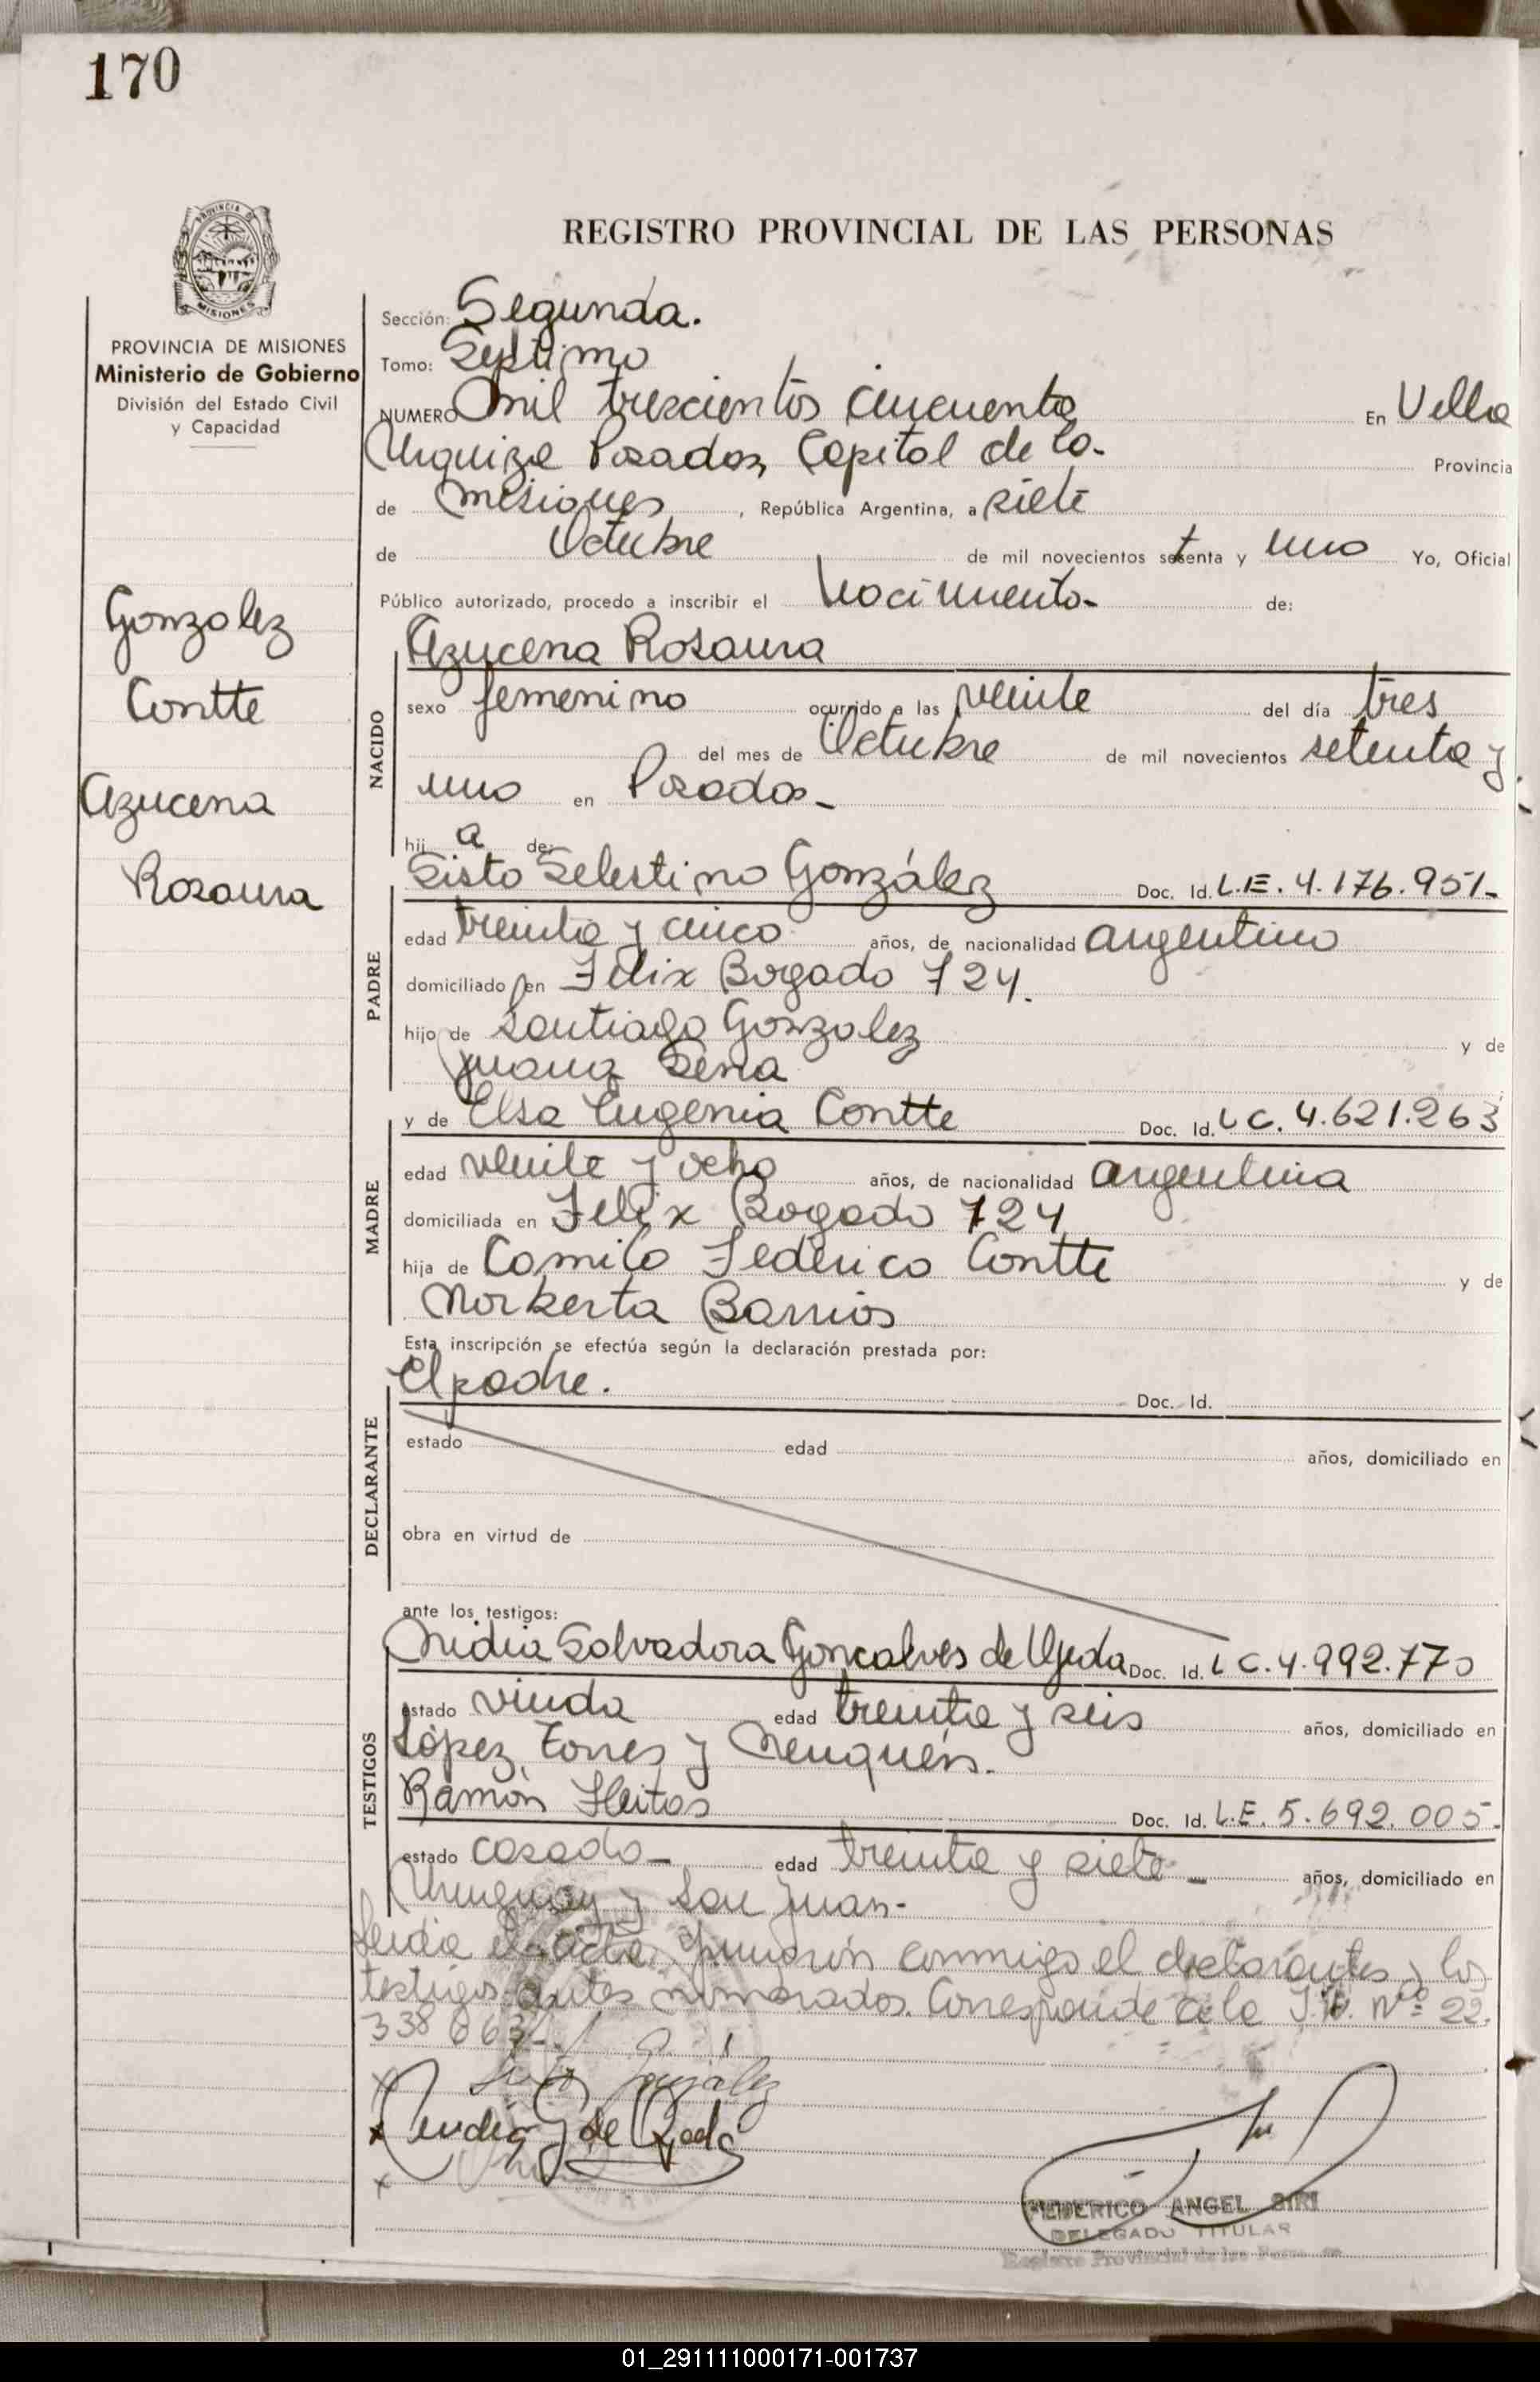 170
PROVINCIA DE
MISIONES
REGISTRO PROVINCIAL DE LAS PERSONAS
PROVINCIA DE MISIONES
Ministerio de Gobierno
División del Estado Civil
y Capacidad
Gonzalez
Contte
Azucena
Rosaura
Sección: Segunda.
Tomo: Septimo
NUMERO mil trescientos cincuenta En Villa
Urquiza Posadas, Capital de la- Provincia
de Misiones, República Argentina, a siete
de Octubre de mil novecientos setenta y uno Yo, Oficial
Público autorizado, procedo a inscribir el Nacimiento- de:
NACIDO
Azucena Rosaura
sexo femenino ocurrido a las veinte del día tres
del mes de Octubre de mil novecientos setenta y
uno en Posadas-
hij a de:
PADRE
Sisto Selestino González Doc. Id. L.E. 4.176.951-
edad treinta y cinco años, de nacionalidad argentino
domiciliado en Felix Bogado 724.
hijo de Santiago Gonzalez y de
Juana Sena
MADRE
y de Elsa Eugenia Contte Doc. Id. L C. 4.621.263
edad veinte y ocho años, de nacionalidad argentina
domiciliada en Felix Bogado 724
hija de Camilo Federico Contte y de
Norberta Barrios
Esta inscripción se efectúa según la declaración prestada por:
DECLARANTE
El padre. Doc. Id.
estado edad años, domiciliado en
obra en virtud de
ante los testigos:
TESTIGOS
Nidia Salvadora Goncalves de Ojeda Doc. Id. L C. 4.992.770
estado viuda edad treinta y seis años, domiciliado en
López Torres y Neuquén.
Ramón Fleitas Doc. Id. L.E. 5.692.005-
estado casado- edad treinta y siete- años, domiciliado en
Uruguay y San Juan-
Leida el acta, firmarón conmigo el declarante y los
testigos antes nombrados. Corresponde a la Nº 22.
338 663-
Sisto González
Nidia G de Ojeda
FEDERICO ANGEL BIRI
DELEGADO TITULAR
Registro Provincial de las Personas
01_291111000171-001737